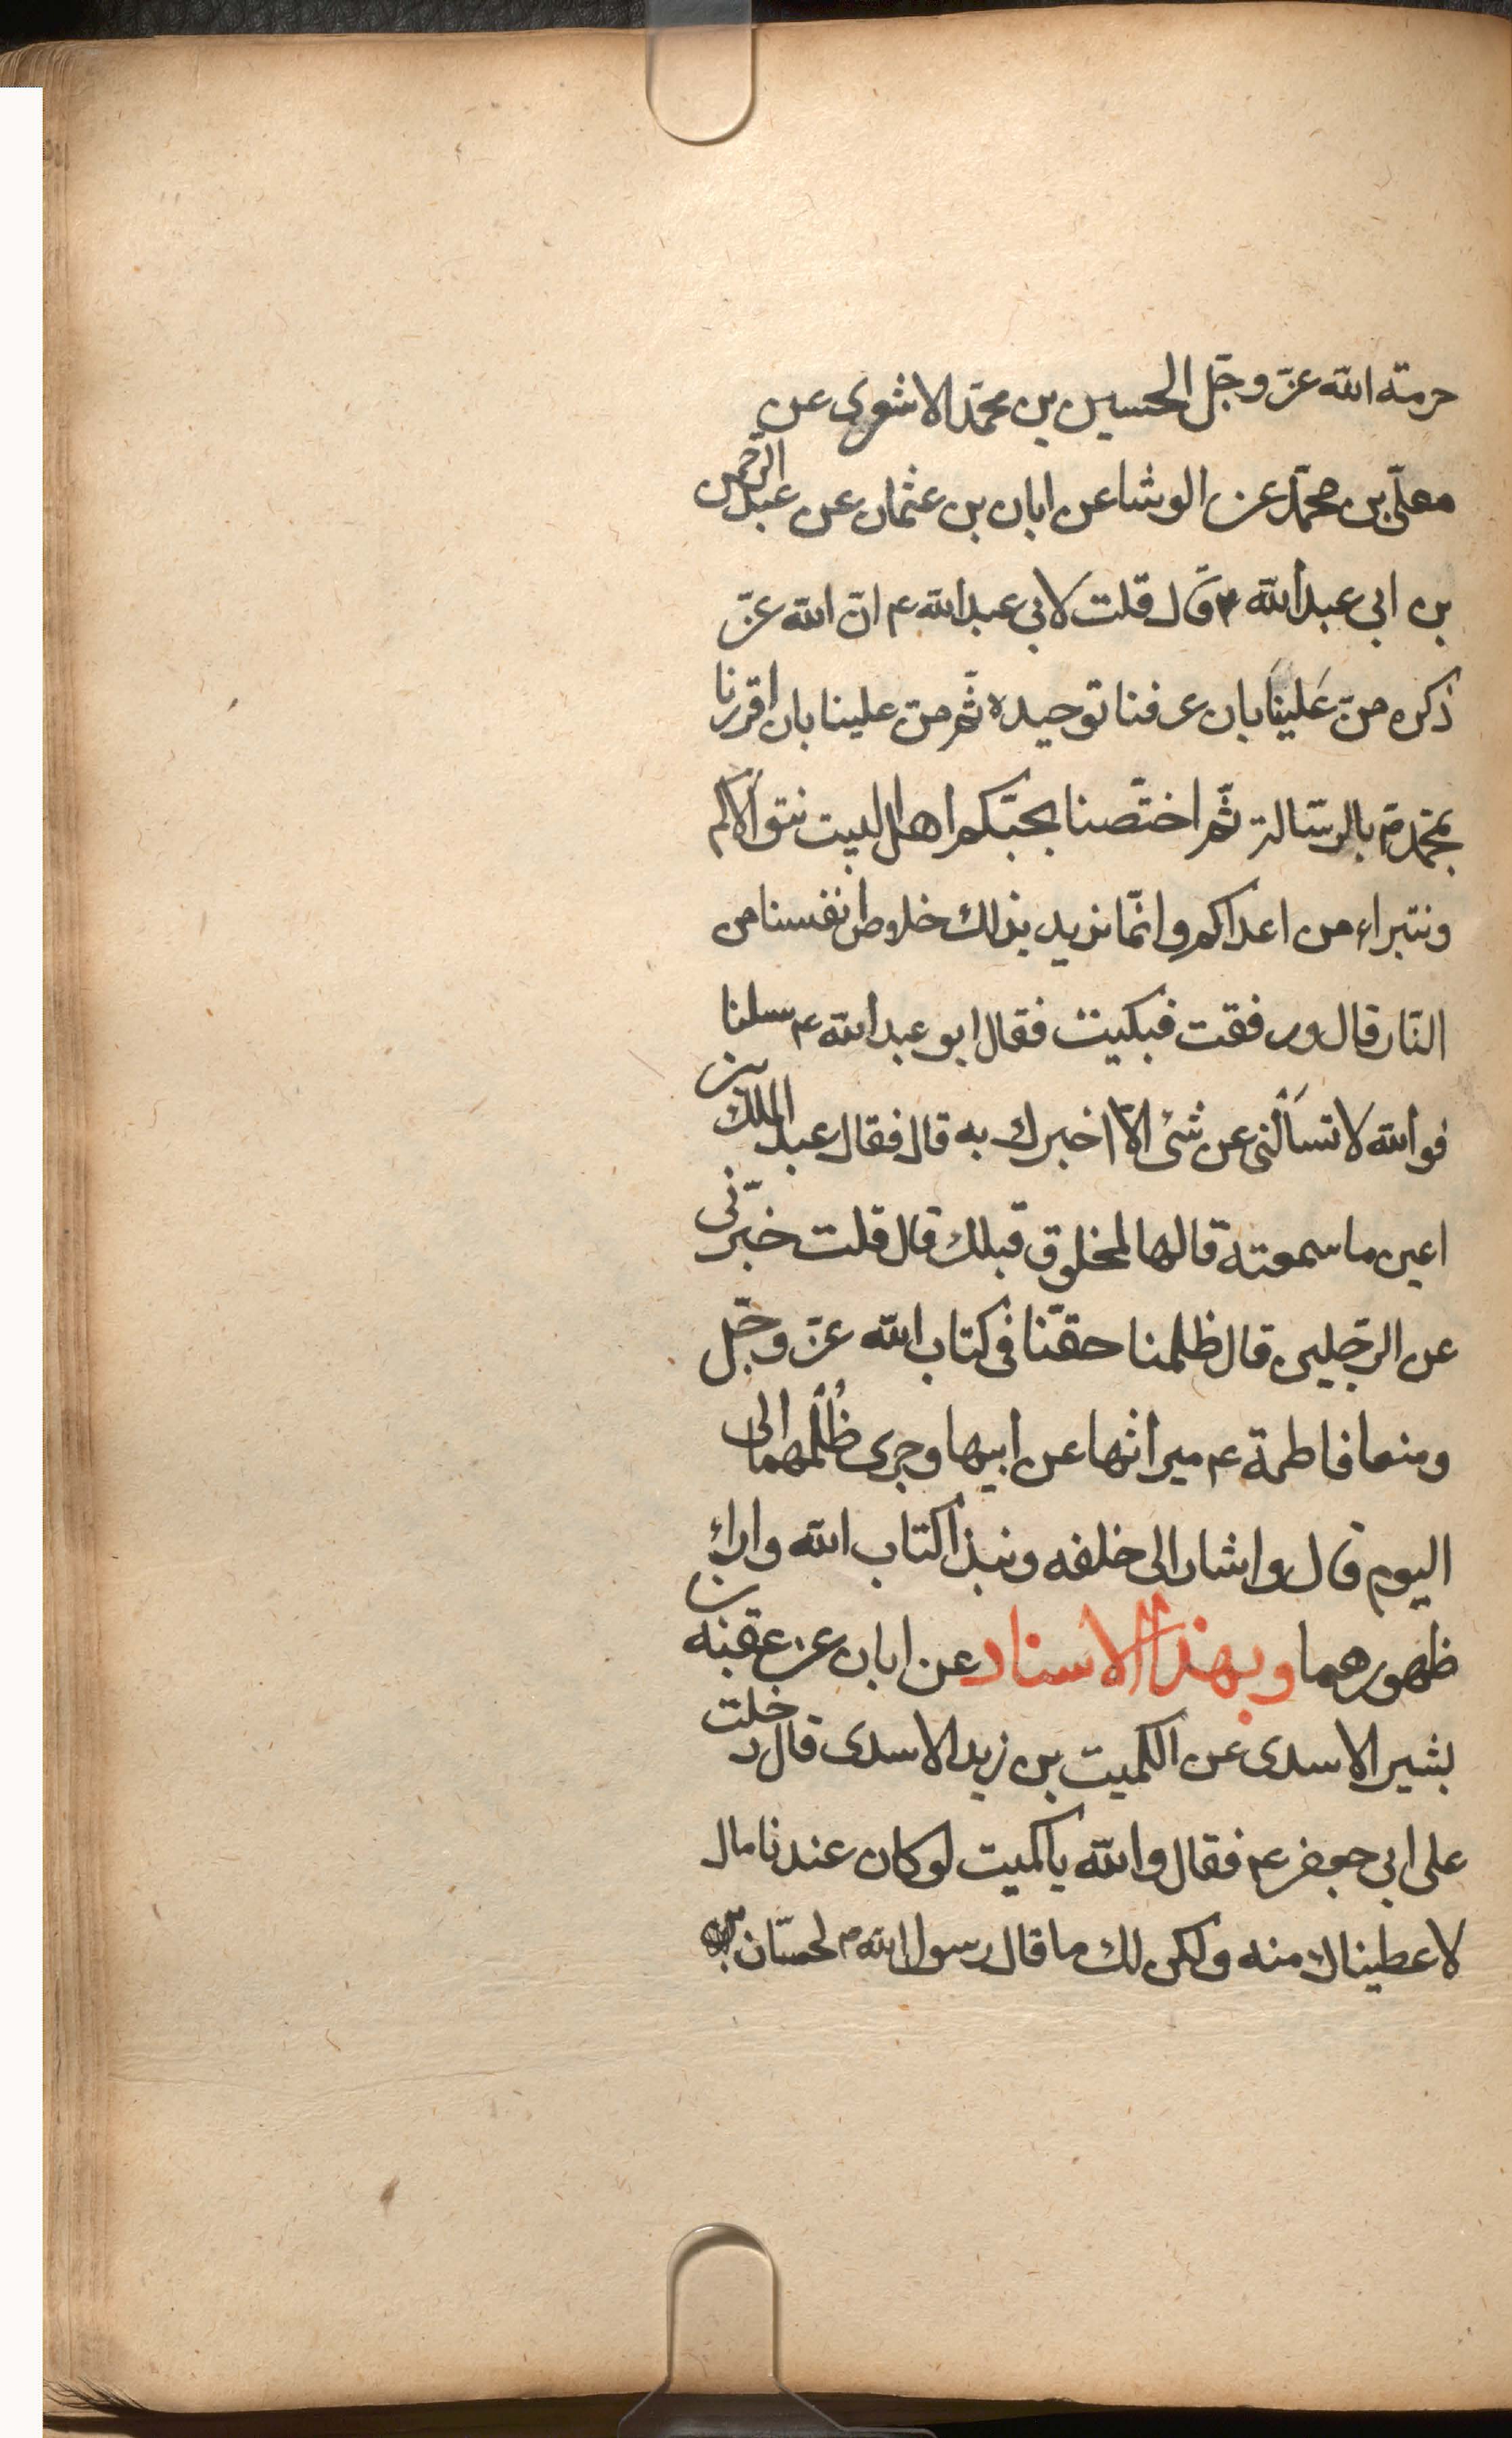 حرمة الله عزّ وجّل الحسين بن محمّد الاشعرى عن
معلّى بن محمّد عن الوشا عن ابان بن عثمان عن عبد الرّحمن
بن ابى عبد الله قال قلت لابى عبد الله ع م انّ الله عزّ
ذكره منّ علينا بان عرفنا توحيده ثّم منّ علينا بان اقررنا
بمحمّد ص بالرسّالة ثّم اختّصنا بحبّكم اهل البيت نتوالاكم
ونتبراء من اعداكم وانمّا نريد بذلك خلاص انفسنا من
النّار قال ورفقت فبكيت فقال ابو عبد الله ع م سلنا
فو الله لا تسألنى عن شئ الاّ اخبرك به قال فقال عبد الملك بن
اعين ما سمعته قالها لمخلوق قبلك قال قلت خبّرنى
عن الرّجلين قال ظلمنا حقنّا فى كتاب الله عزّ وجّل
ومنعا فاطمة ع م ميراثها عن ابيها وجرى ظُلْمُهما الى
اليوم قال واشار الى خلفه ونبذا كتاب الله واراء
ظهورهما وبهذا الاسناد عن ابان عن عقبه بن
بشير الاسدى عن الكميت بن زيد الاسدى قال دخلت
على ابى جعفر ع م فقال والله يا كميت لو كان عندنا مال
لاعطيناك منه ولكن لك ما قال رسول الله ص لحسّان بن